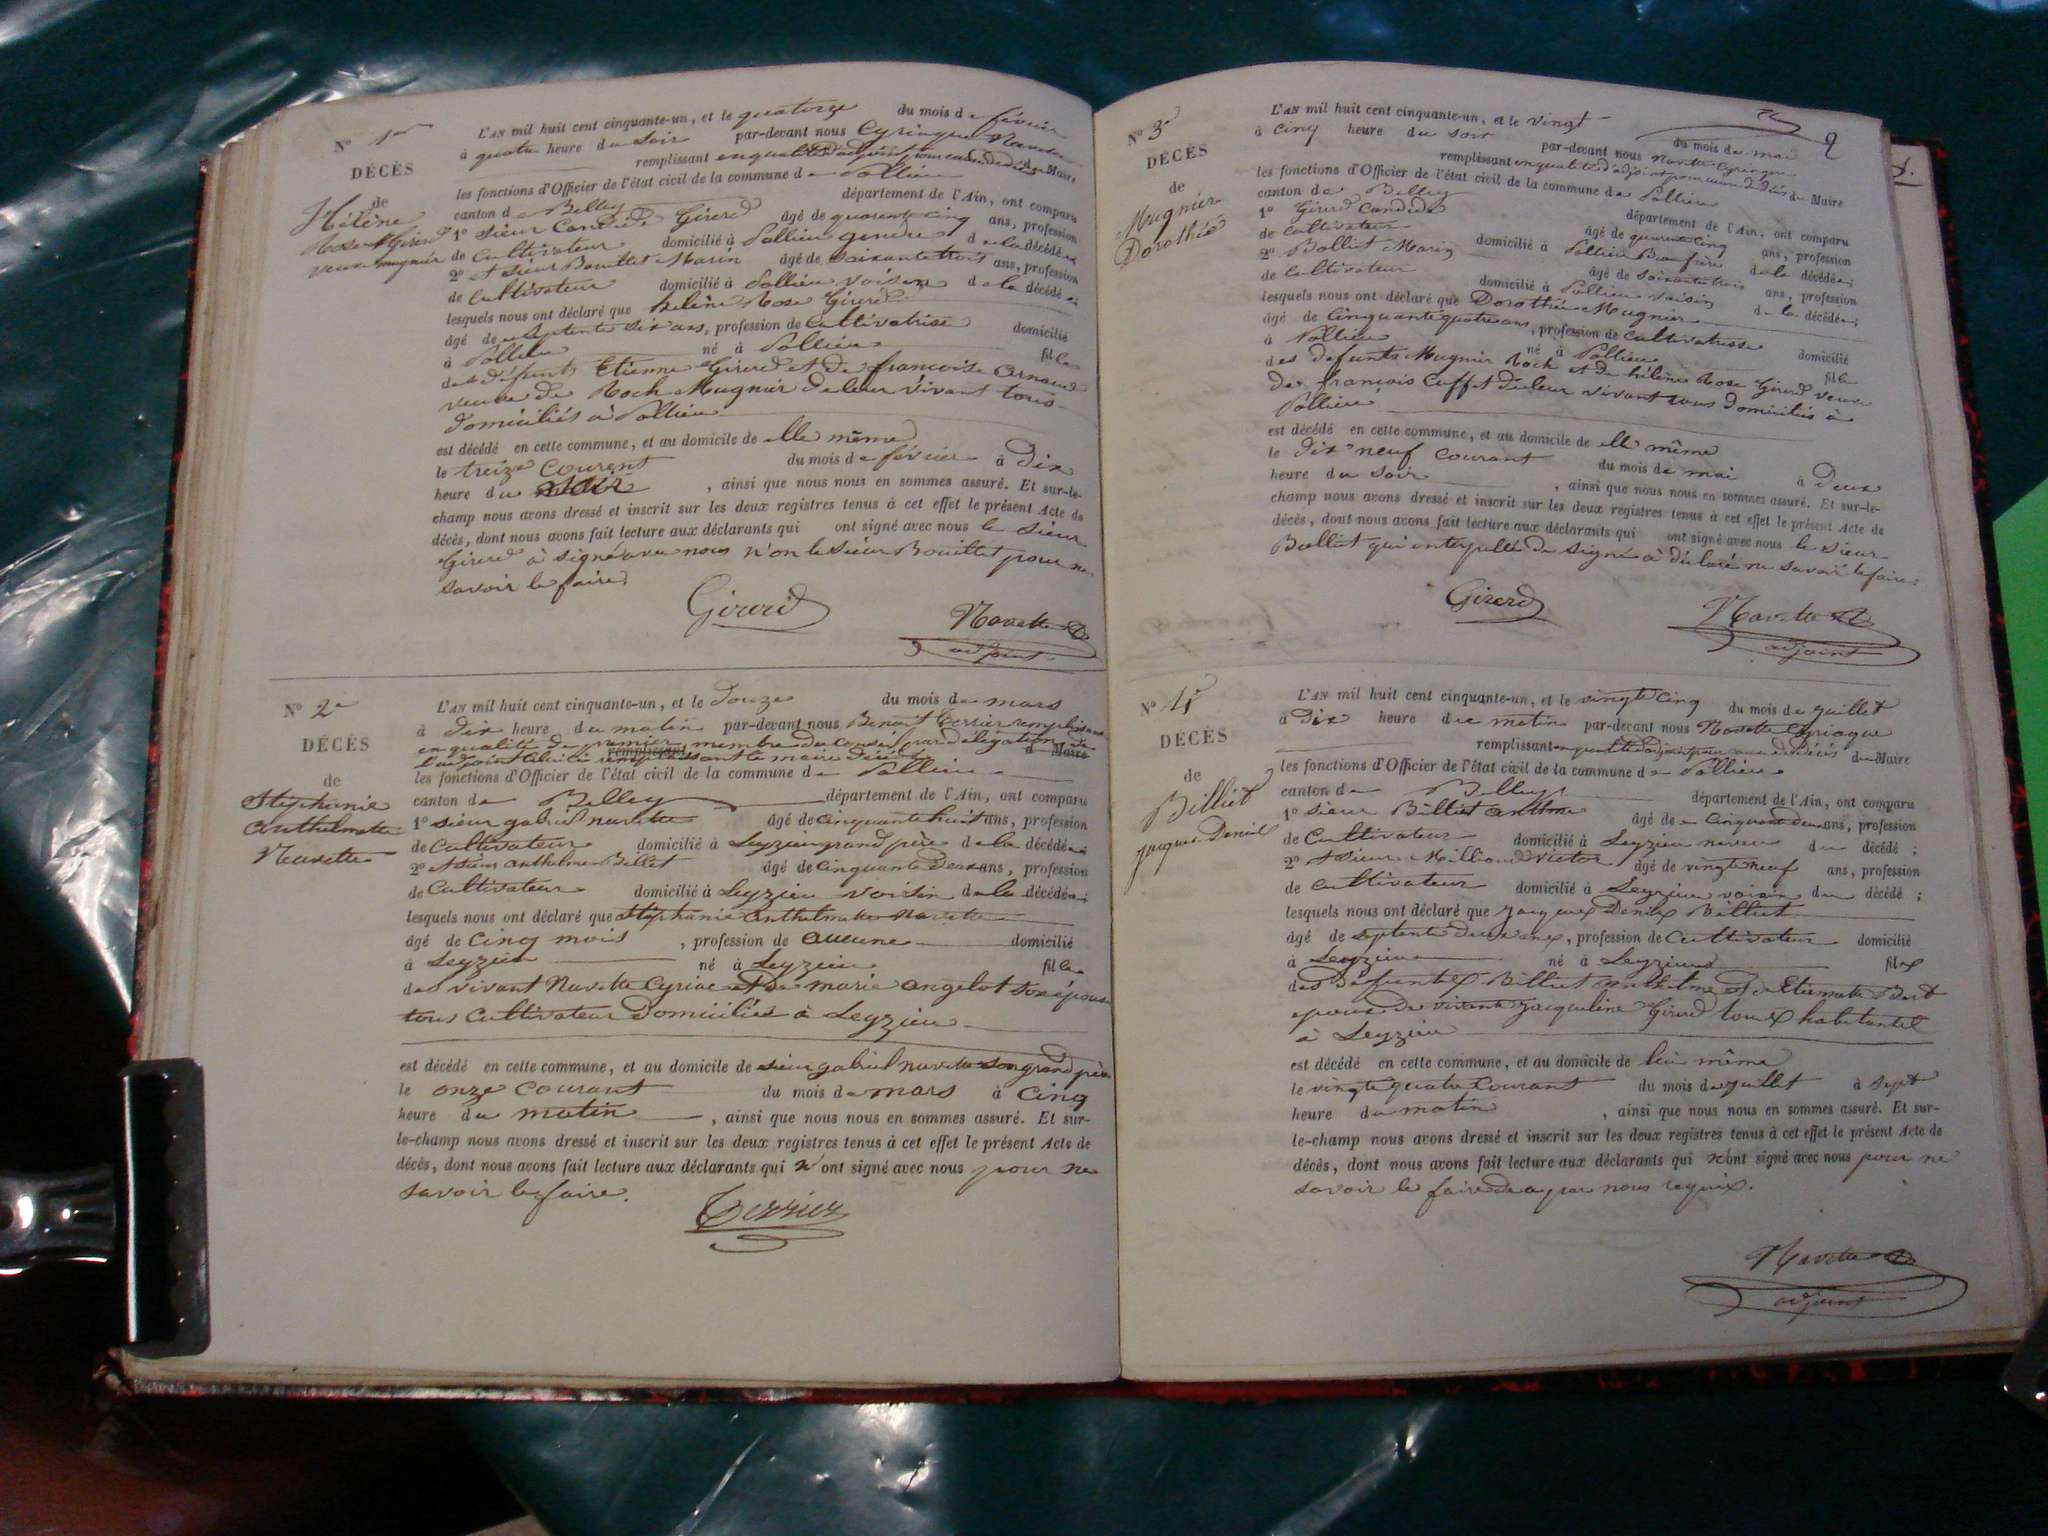 N° 1er
DÉCÈS
de
Hélène
Rose Girerd
veuve mugnier
L'AN mil huit cent cinquante-un, et le quatorze du mois de février
à quatre heure du soir par-devant nous Cyriaque Navette
remplissant en qualité d'adjoint Maire
les fonctions d'Officier de l'état civil de la commune de Pollieu
canton de Belley département de l'Ain, ont comparu
1° sieur Candide Girerd âgé de quarente cinq ans, profession
de cultivateur domicilié à Pollieu gendre de la décédée
2° et sieur Bouillet Marin âgé de soixante trois ans, profession
de cultivateur domicilié à Pollieu voisin de la décédée;
lesquels nous ont déclaré que hélène Rose Girerd
âgé de septente six ans, profession de Cultivatrisse domicilié
à Pollieu né à Pollieu fille
des défunts Etienne Girerd et de françoise Arnaud
veuve de Roch Mugnier de leur vivant tous
domiciliés à Pollieu
est décédé en cette commune, et au domicile de elle même
le treize courent du mois de février à dix
heure du soir, ainsi que nous nous en sommes assuré. Et sur-le-
champ nous avons dressé et inscrit sur les deux registres tenus à cet effet le présent Acte de
décès, dont nous avons fait lecture aux déclarants qui ont signé avec nous le sieur
Girerd à signé avec nous n'on le sieur Bouillet pour ne
savoir le faire
Girerd
Navette
adjoint
N° 2e
DÉCÈS
de
Stéphanie
Anthelmette
Navette
L'AN mil huit cent cinquante-un, et le douze du mois de mars
à dix heure du matin par-devant nous Benoit Terrier remplissant
en qualité de premier membre du conseil par délégation de
l'adjoint remplissant le maire Maire
les fonctions d'Officier de l'état civil de la commune de Pollieu
canton de Belley département de l'Ain, ont comparu
1° sieur gabriel navette âgé de cinquante huit ans, profession
de Cultivateur domicilié à Leyzieu grand père de la décédée;
2° et sieur anthelme Billet âgé de cinquante deux ans, profession
de Cultivateur domicilié à Leyzieu voisin de la décédée;
lesquels nous ont déclaré que Stéphanie Anthelmette Navette
âgé de cinq mois, profession de aucune domicilié
à Leyzieu né à Leyzieu fille
des vivant Navette Cyriac et de marie angelot son épouse
tous cultivateur domiciliés à Leyzieu
est décédé en cette commune, et au domicile de sieur gabriel navette son grand père
le onze courant du mois de mars à cinq
heure du matin, ainsi que nous nous en sommes assuré. Et sur-
le-champ nous avons dressé et inscrit sur les deux registres tenus à cet effet le présent Acte de
décès, dont nous avons fait lecture aux déclarants qui n'ont signé avec nous pour ne
savoir le faire.
Terrier
2
N° 3e
DÉCÈS
de
Mugnier
Dorothée
L'AN mil huit cent cinquante-un, et le vingt du mois de mai
à cinq heure du soir par-devant nous navette Cyriaque
remplissant en qualité d'adjoint du Maire
les fonctions d'Officier de l'état civil de la commune de Pollieu
canton de Belley département de l'Ain, ont comparu
1° Girerd Candide âgé de quarente cinq ans, profession
de cultivateur domicilié à Pollieu Beau frère de la décédée;
2° Bolliet Marin âgé de soixante trois ans, profession
de Cultivateur domicilié à Pollieu voisin de la décédée;
lesquels nous ont déclaré que Dorothée Mugnier
âgé de cinquante quatre ans, profession de cultivatrisse domicilié
à Pollieu né à Pollieu fille
des défunts Mugnier Roch et de hélène Rose Girerd veuve
de françois Cuffet de leur vivant tous domiciliés à
Pollieu
est décédé en cette commune, et au domicile de elle même
le dix neuf courant du mois de mai à deux
heure du soir, ainsi que nous nous en sommes assuré. Et sur-le-
champ nous avons dressé et inscrit sur les deux registres tenus à cet effet le présent Acte de
décès, dont nous avons fait lecture aux déclarants qui ont signé avec nous le sieur
Bolliet qui interpellé de signé à déclaré ne savoir le faire
Girerd
Navette
adjoint
N° 4
DÉCÈS
de
Billiet
jacques Denis
L'AN mil huit cent cinquante-un, et le vingt cinq du mois de juillet
à dix heure du matin par-devant nous Navette Cyriaque
remplissant en qualité d'adjoint du Maire
les fonctions d'Officier de l'état civil de la commune de Pollieu
canton de Belley département de l'Ain, ont comparu
1° sieur Billiet Anthelme âgé de cinquante deux ans, profession
de Cultivateur domicilié à Leyzieu neveu du décédé;
2° et sieur Millioud victor âgé de vingt neuf ans, profession
de cultivateur domicilié à Leyzieu voisin du décédé;
lesquels nous ont déclaré que jacques Denis Billiet
âgé de septente deux ans, profession de Cultivateur domicilié
à Leyzieu né à Leyzieu fils
des défuntes Billiet anthelme et de Etiennette Bert
epoux de vivante jacqueline Girerd tous habitantes
à Leyzieu
est décédé en cette commune, et au domicile de lui même
le vingt quatre courant du mois de juillet à sept
heure du matin, ainsi que nous nous en sommes assuré. Et sur-
le-champ nous avons dressé et inscrit sur les deux registres tenus à cet effet le présent Acte de
décès, dont nous avons fait lecture aux déclarants qui n'ont signé avec nous pour ne
savoir le faire de a par nous requis.
Navette
adjoint